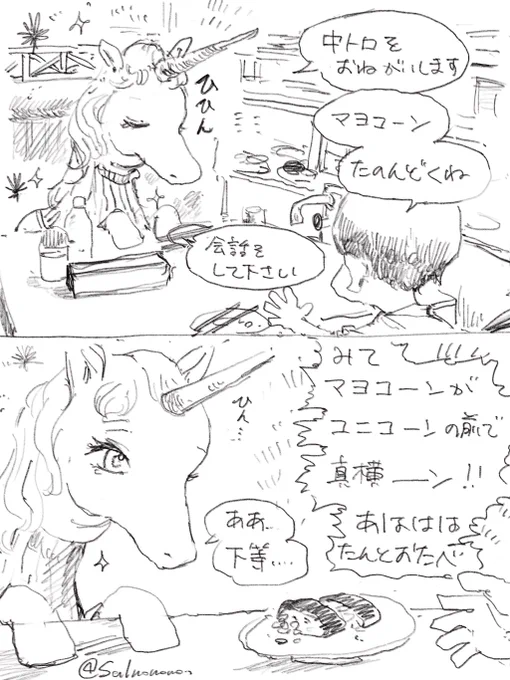 中トロを
おねがいします
ひひん
マヨコーン
たのんどくね
会話を
して下さい
みて
マヨコーンが
ユニコーンの前で
真横ーン!!
あははは
たんとおたべ
ひん…
ああ…
下等…